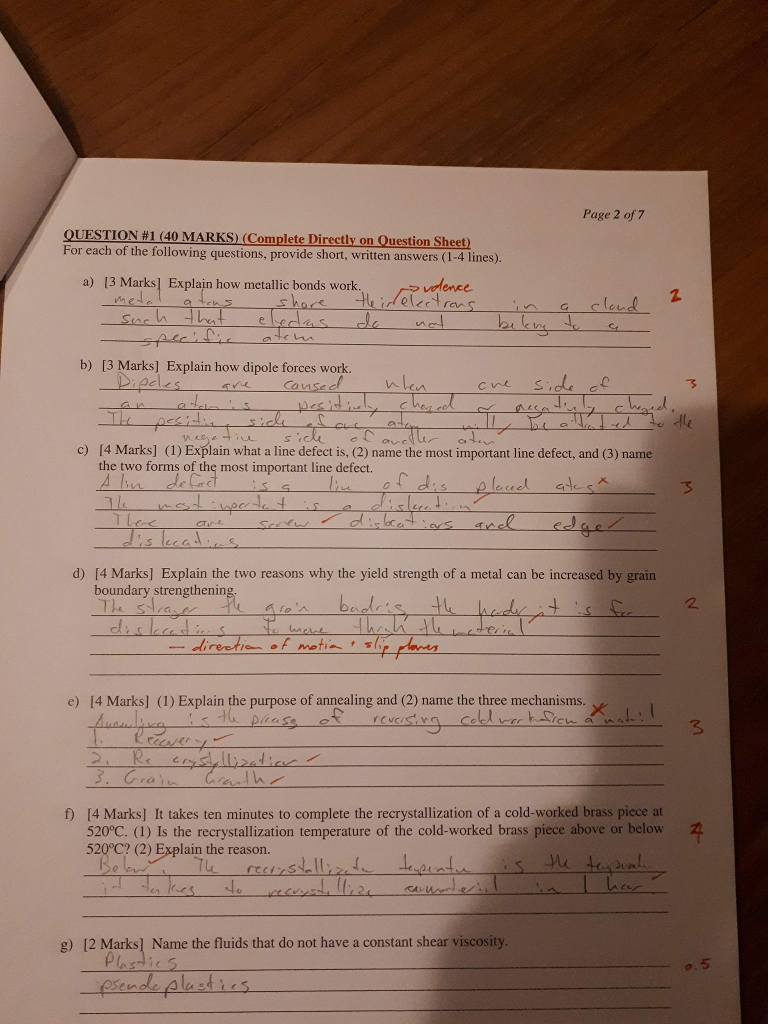 Page 2 of 7
QUESTION #1 (40 MARKS) (Complete Directly on Question Sheet)
For each of the following questions, provide short, written answers (1-4 lines).
a) [3 Marks] Explain how metallic bonds work.
valence
metal atoms share their electrons in a cloud 2
such that do not belong to a
specific atom
b) [3 Marks] Explain how dipole forces work.
Dipoles are caused when one side of 3
an atom is positively charged or negatively charged.
The positive side of one atom will be attracted to the
negative side of another atom
c) [4 Marks] (1) Explain what a line defect is, (2) name the most important line defect, and (3) name
the two forms of the most important line defect.
A line defect is a line of displaced 3
The most is a
There are screw dislocations and edge
dislocations
d) [4 Marks] Explain the two reasons why the yield strength of a metal can be increased by grain
boundary strengthening.
The the grain the harder it is for 2
dislocations to move the material
- direction of motion + slip planes
e) [4 Marks] (1) Explain the purpose of annealing and (2) name the three mechanisms.
is the of reversing cold work from a 3
1. Recovery
2. Re crystallization
3. Grain Growth
f) [4 Marks] It takes ten minutes to complete the recrystallization of a cold-worked brass piece at
520°C. (1) Is the recrystallization temperature of the cold-worked brass piece above or below 4
520°C? (2) Explain the reason.
Below. The is the
it takes to recrystallize in 1 hour
g) [2 Marks] Name the fluids that do not have a constant shear viscosity.
Plastics 0.5
pseudoplastics